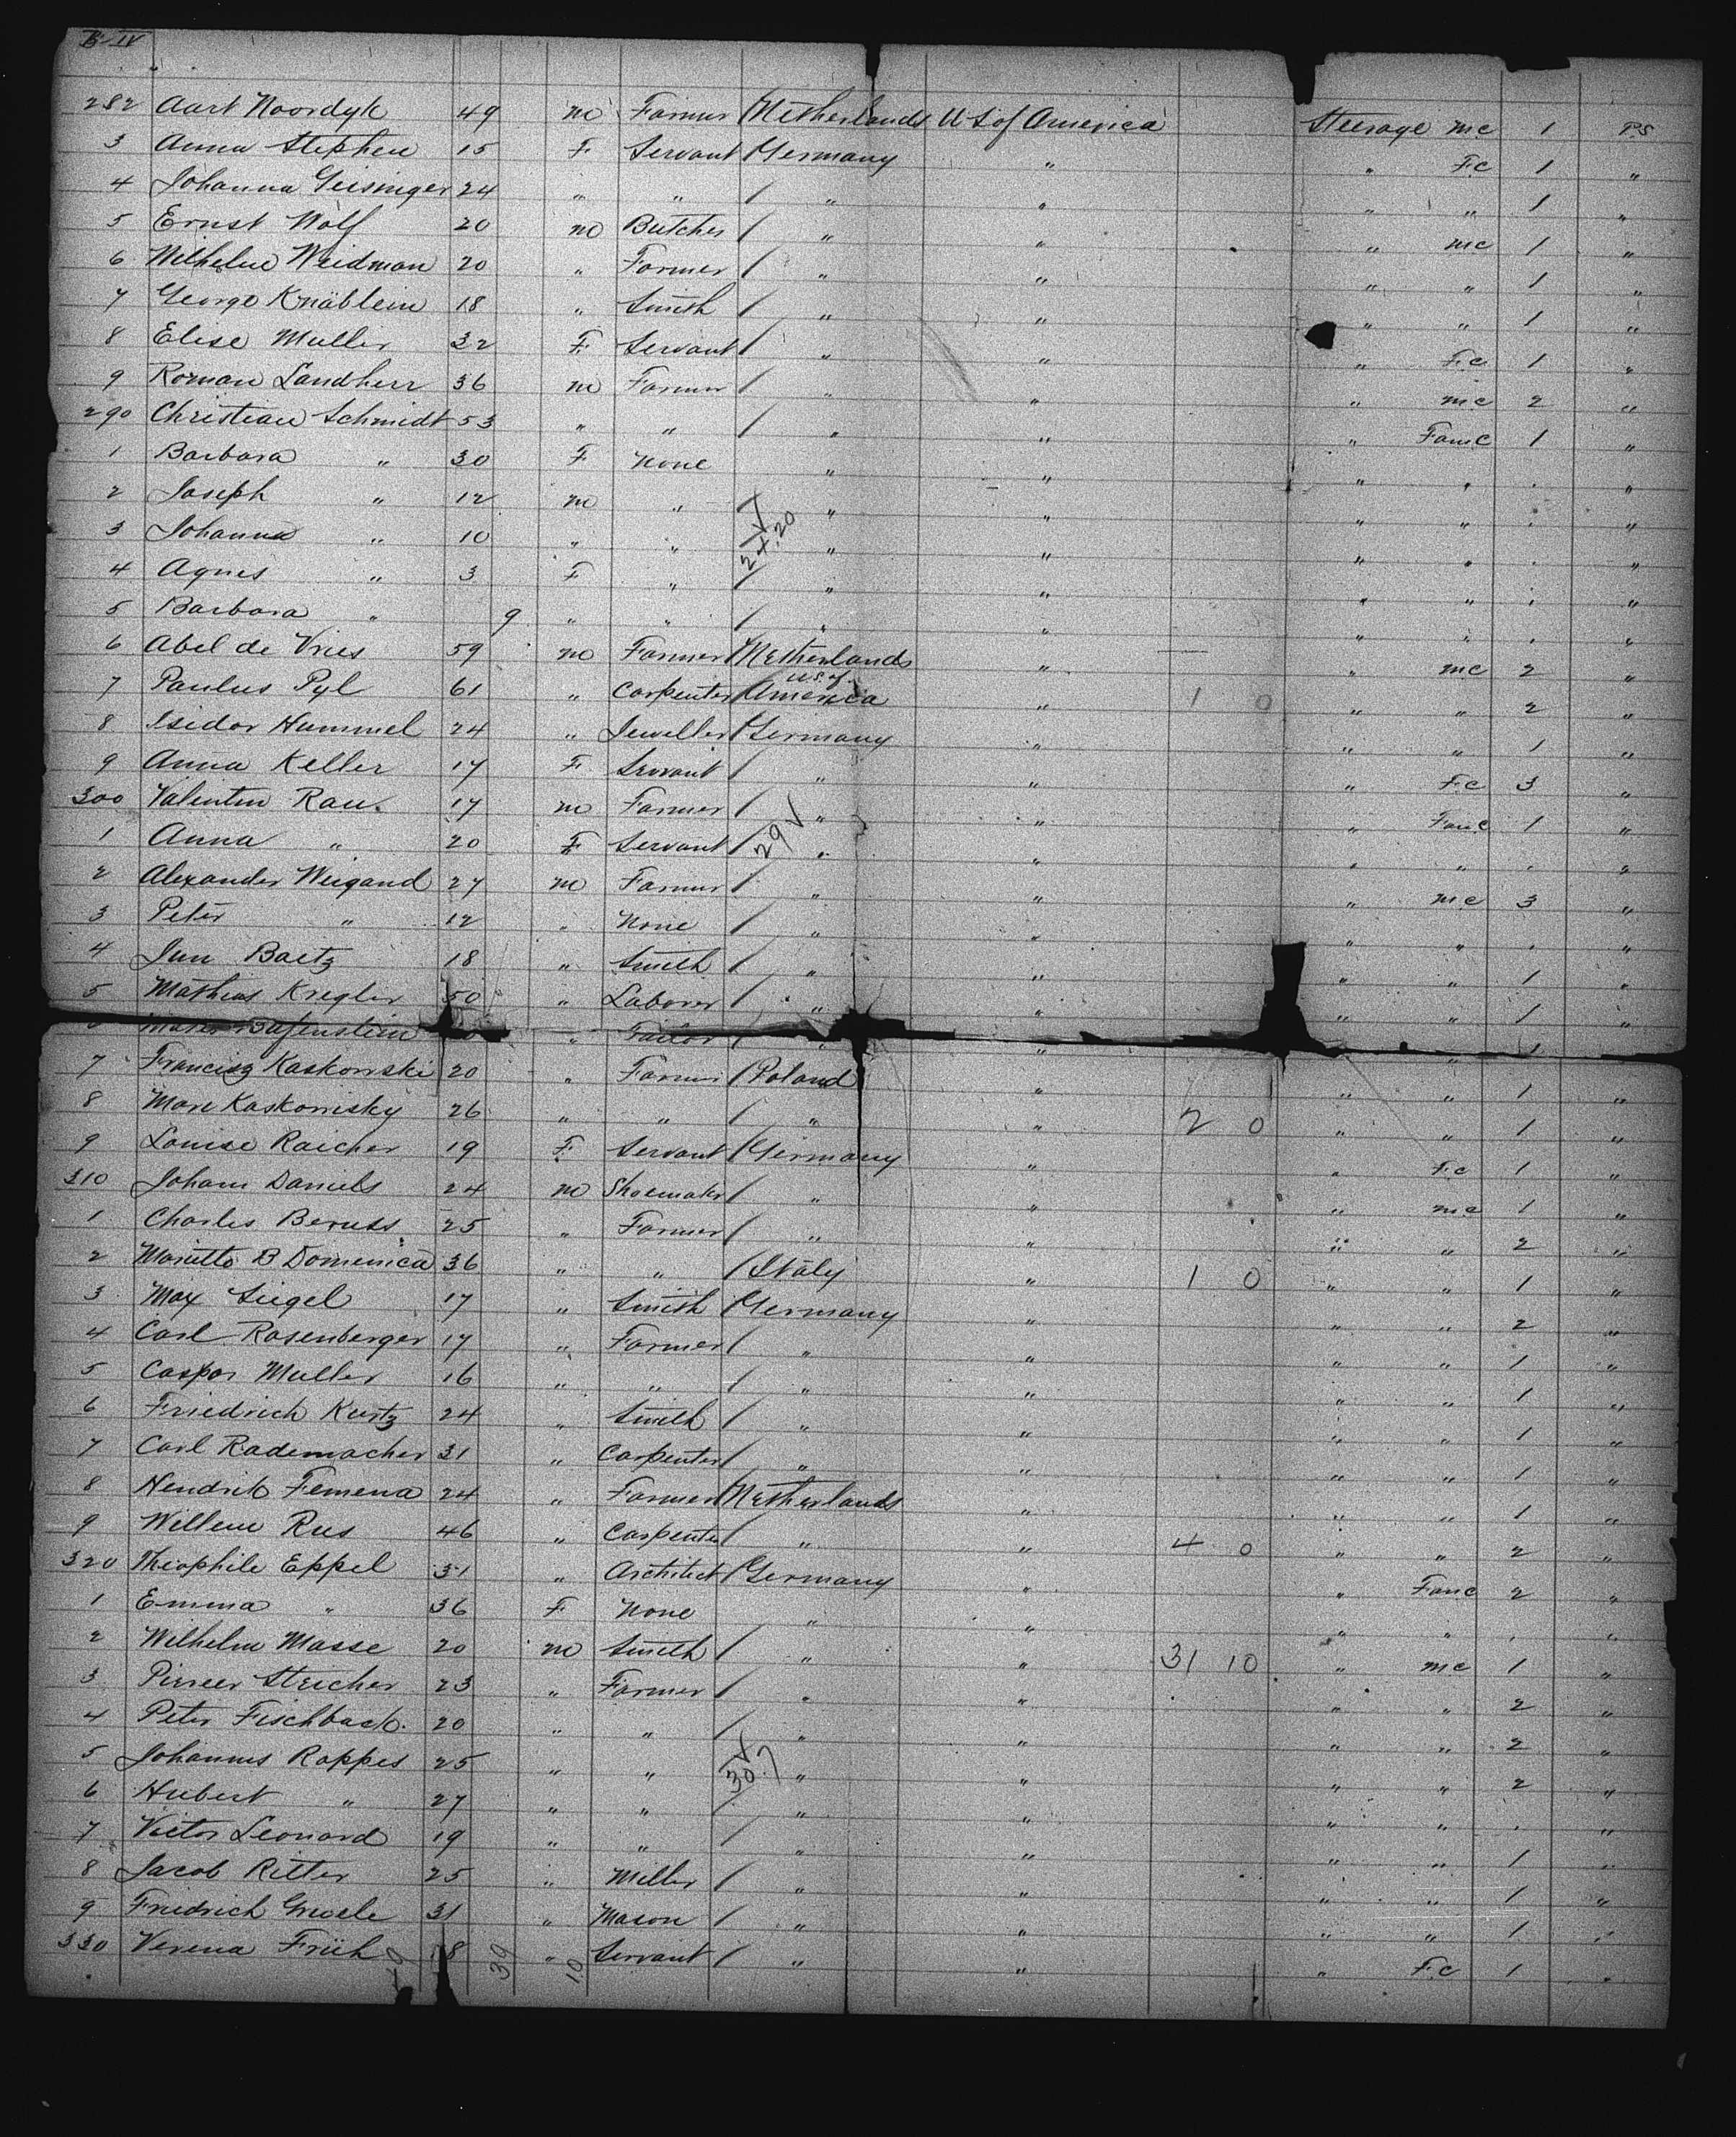 B-IV
282 Aart Noordyk 49 m Farmer Netherlands U S of America Steerage mc 1 P.S
3 Anna Stephen 15 F Servant Germany " " F.c 1 "
4 Johanna Geisinger 24 " " / " " " " 1 "
5 Ernst Wolf 20 m Butcher / " " " mc 1 "
6 Wilhelm Weidman 20 " Farmer / " " " " 1 "
7 George Knäblein 18 " Smith / " " " " 1 "
8 Elise Muller 32 F Servant / " " " F.c 1 "
9 Roman Landherr 36 m Farmer / " " " mc 2 "
290 Christian Schmidt 53 " " / " " " Famc 1 "
1 Barbara " 30 F None " " " " " "
2 Joseph " 12 m " / " " " " " "
3 Johanna " 10 " " 24.20 " " " " " "
4 Agnes " 3 F " / " " " " " "
5 Barbara " 9 " " / " " " " " "
6 Abel de Vries 59 m Farmer Netherlands " " mc 2 "
7 Paulus Pyl 61 " Carpenter U.S. of America " 1 0 " " 2 "
8 Isidor Hummel 24 " Jeweller Germany " " " 1 "
9 Anna Keller 17 F Servant / " " " F.c 3 "
300 Valentin Rau 17 m Farmer / " " " Famc 1 "
1 Anna " 20 F Servant / 29 " " " " " "
2 Alexander Weigand 27 m Farmer / " " " mc 3 "
3 Peter " 12 " None / " " " " " "
4 Baetz 18 " Smith / " " " " 1 "
5 Mathias Kregler 50 " Laborer / " " " " 1 "
" Tailor / " " " " 1
7 Francisz Kaskowski 20 " Farmer / Poland " " " 1 "
8 Mari Kaskowisky 26 " " / " " 2 0 " " 1 "
9 Louise Raicher 19 F Servant / Germany " " F.c 1 "
310 Johann Daniels 24 m Shoemaker / " " " mc 1 "
1 Charles Beruss 25 " Farmer / " " " " 2 "
2 Marietto B Domenica 36 " " / Italy " 1 0 " " 1 "
3 Max Siegel 17 " Smith Germany " " " 2 "
4 Carl Rosenberger 17 " Farmer / " " " " 1 "
5 Caspar Muller 16 " " / " " " " 1 "
6 Friedrich Kurtz 24 " Smith / " " " " 1 "
7 Carl Rademacher 31 " Carpenter / " " " " 1 "
8 Hendrik Femena 24 " Farmer Netherlands " " " 1 "
9 Willem Rus 46 " Carpenter / " " 4 0 " " 2 "
320 Theophile Eppel 31 " Architect / Germany " " Famc 2 "
1 Emma " 36 F None " " " " " "
2 Wilhelm Masse 20 m Smith / " " 31 10 " mc 1 "
3 Streicher 23 " Farmer / " " " " 2 "
4 Peter Fischback 20 " " / " " " " 2 "
5 Johannes Rappes 25 " " 30.7 " " " " 2 "
6 Hubert " 27 " " / " " " " " "
7 Victor Leonard 19 " " / " " " " 1 "
8 Jacob Ritter 25 " Miller / " " " " 1 "
9 Friedrich 31 " Mason / " " " " 1 "
330 Verena Früh " Servant / " " " F.c 1 "
39 10